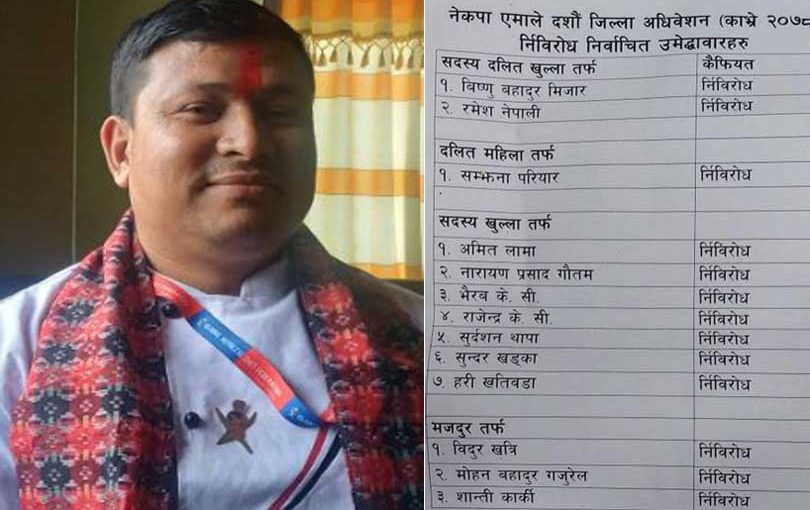 नेकपा एमाले दशौं जिल्ला अधिवेशन (काभ्रे २०७८
र्निविरोध निर्वाचित उमेद्धावारहरु
सदस्य दलित खुल्ला तर्फ कैफियत
१. बिष्णु बहादुर मिजार र्निविरोध
२. रमेश नेपाली र्निविरोध
दलित महिला तर्फ
१. सम्झना परियार र्निविरोध
सदस्य खुल्ला तर्फ
१. अमित लामा र्निविरोध
२. नारायण प्रसाद गौतम र्निविरोध
३. भैरब के. सी. र्निविरोध
४. राजेन्द्र के. सी. र्निविरोध
५. सुर्दशन थापा र्निविरोध
६. सुन्दर खड्का र्निविरोध
७. हरी खतिवडा र्निविरोध
मजदुर तर्फ
१. विदुर खत्रि र्निविरोध
२. मोहन बहादुर गजुरेल र्निविरोध
३. शान्ती कार्की र्निविरोध